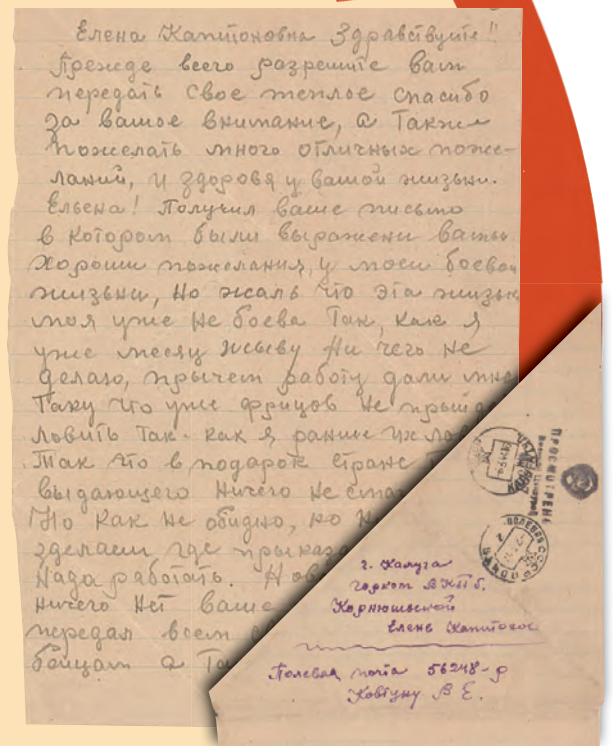 Елена Капитоновна Здравствуйте!!
Прежде всего разрешите вам
передать свое теплое спасибо
за вашое внимание, а также
пожелать много отличных поже-
ланий, и здоровя у вашой жизьни.
Ельена! Получил ваше письмо
в котором были выражени вашы
хороши пожелания, у моей боевой
жизьни, но жаль что эта жизьн
моя уже не боева так, как я
уже месяц жыву ни чего не
делаю, прычем работу дали мне
таку что уже фрицов не прыд
ловить так-как я раньше их
так что в подарок стране
выдающего ничего не
но как не обидно, но
зделаеш где прыказ
нада работать. Нов
ничего нет ваше
передал всем
бойцам а Та
ПРОСМОТРЕНО
Военной Цензурой
г. Калуга
горком ВКП б.
Корнюшьской
Елене Капитонов
Полевая почта 56248-р
Ковтуну В Е.